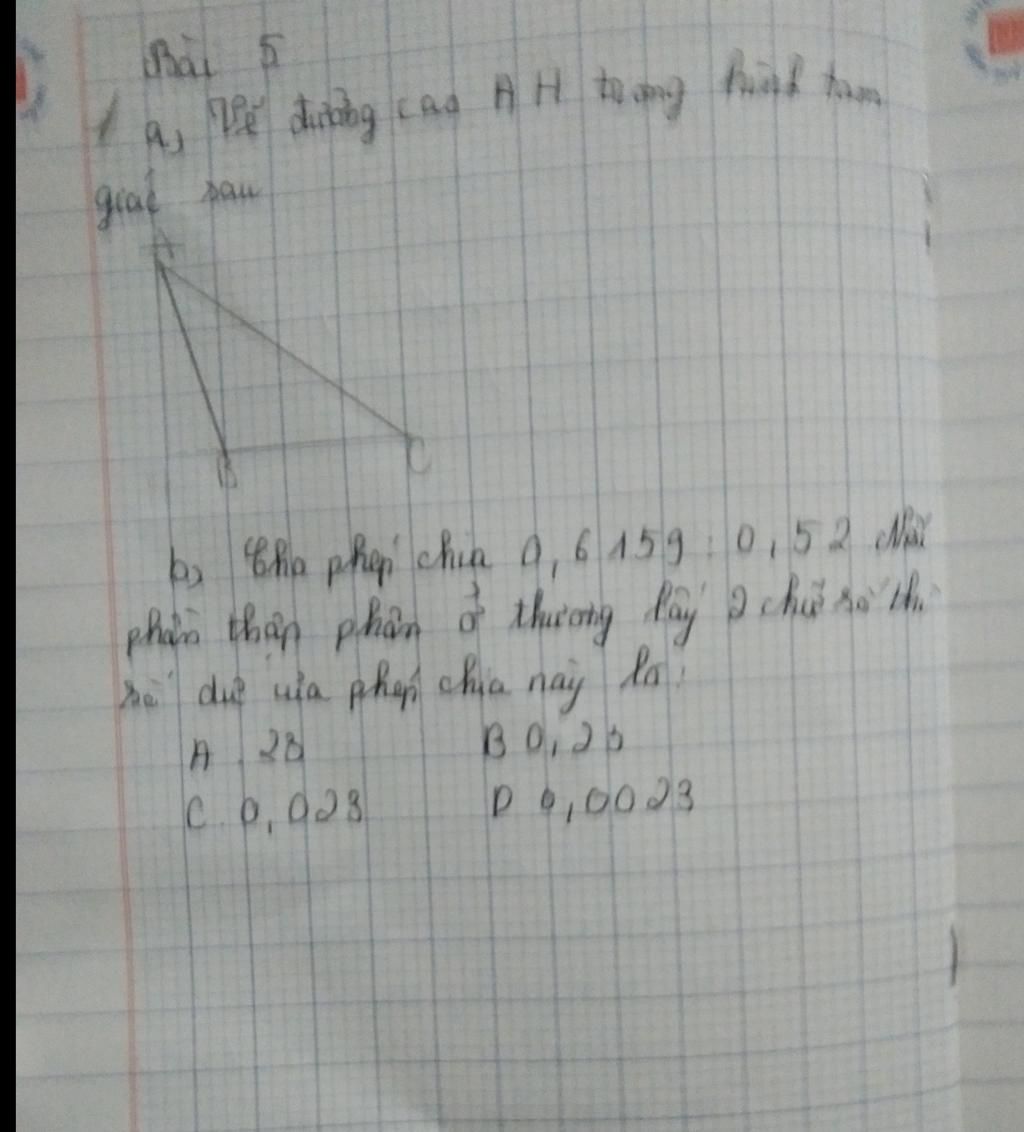 Bài 5
a, Vẽ đường cao AH trong hình tam
giác sau
A
B C
b, Cho phép chia 0,6159 : 0,52 Nếu
phần thập phân ở thương lấy 2 chữ số thì
số dư của phép chia này là:
A. 23 B 0,23
C. 0,023 D 0,0023